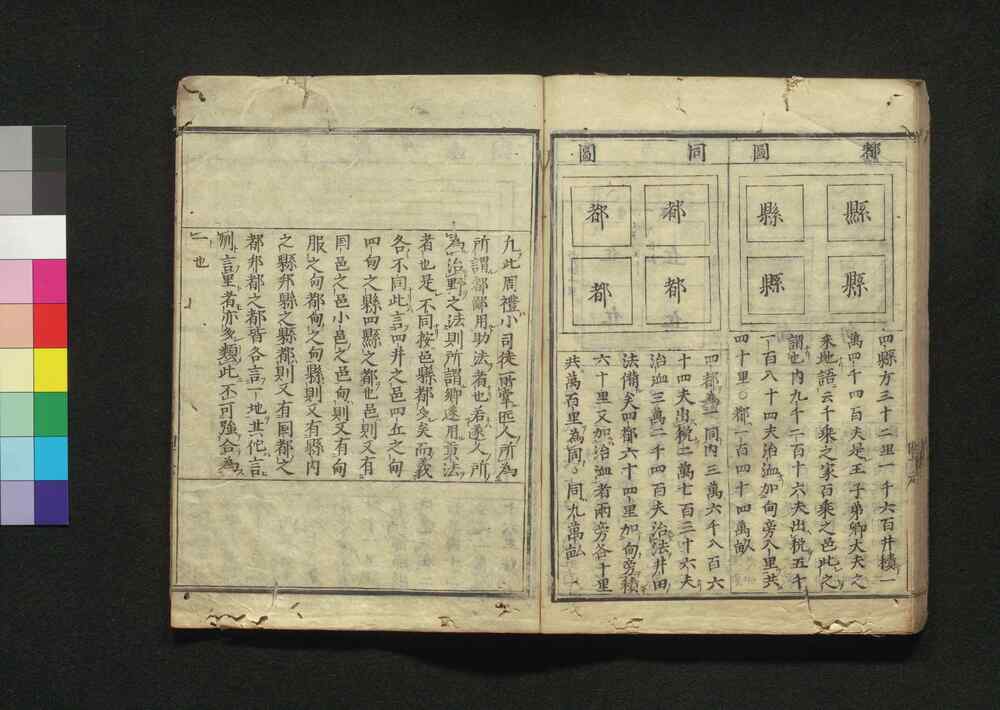 都圖
縣
縣
縣
縣
四縣方三十二里一千六百井積一
萬四千四百夫是王子弟卿大夫之
釆地語云千乘之家百乘之邑此之
謂也内九千二百十六夫出税五千
一百八十四夫治洫如甸旁八里共
四十里。都一百四十四萬畝
同圖
都
都
都
都
四都為一同内三萬六千八百六
十四夫出税二萬七百三十六夫
治洫三萬二千四百夫治法井田
法備矣四都六十四里加甸旁積
六十里又加治洫者兩旁各十里
共萬百里為同。同九萬畝
九此周禮小司徒所掌匠人所為
所謂都鄙用助法者也若遂人所
為治野之法則所謂鄉遂用貢法
者也是不同按邑縣都多矣而義
各不同此言四井之邑四丘之甸
四甸之縣四縣之都也邑則又有
國邑之邑小邑之邑甸則又有甸
服之甸都甸之甸縣則又有縣内
之縣邦縣之縣都則又有國都之
都邦都之都皆各言一地其他言
則言里者亦多類此不可強合為
一也